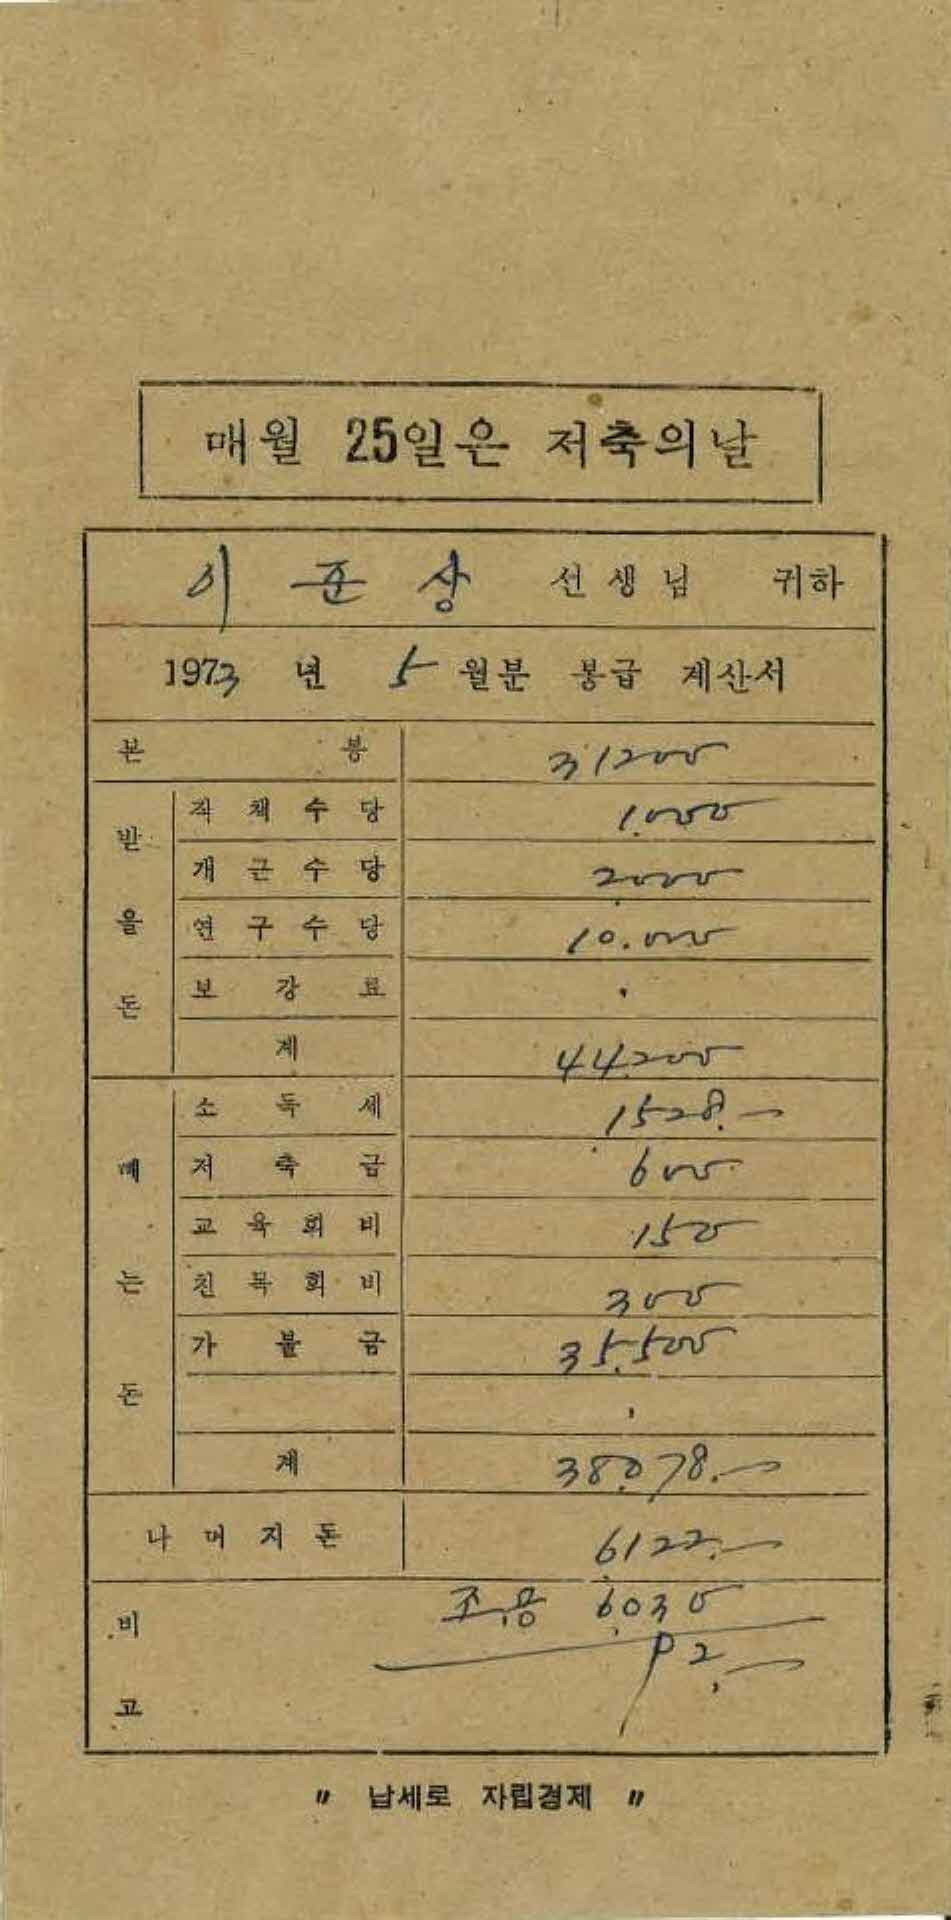 매월 25일은 저축의날
이 준 상 선생님 귀하
1973 년 5 월분 봉급 계산서
본 봉 31200
받을돈
직책수당 1.000
개근수당 2000
연구수당 10.000
보강료 .
계 44.200
소득세 1528.-
떼는돈
저축금 600
교육회비 150
친목회비 300
가불금 35.500
계 38.078.-
나머지돈 6122.-
비고
조용 6030
92.-
〃 납세로 자립경제 〃